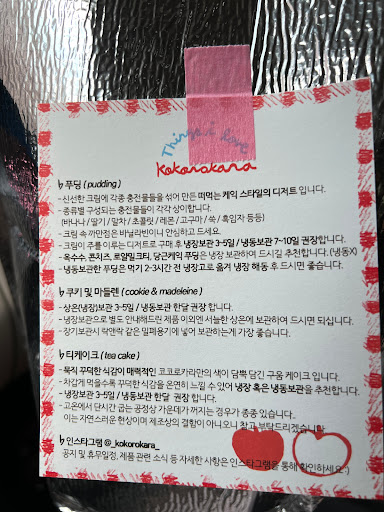 Things i love
kokorokara
♭ 푸딩 ( pudding )
- 신선한 크림에 각종 충전물들을 섞어 만든 떠먹는 케익 스타일의 디저트 입니다.
- 종류별 구성되는 충전물들이 각각 상이합니다.
(바나나 / 딸기 / 말차 / 초콜릿 / 레몬 / 고구마 / 쑥 / 흑임자 등등)
- 크림 속 까만점은 바닐라빈이니 안심하고 드세요.
- 크림이 주를 이루는 디저트로 구매 후 냉장보관 3~5일 / 냉동보관 7~10일 권장합니다.
- 옥수수, 콘치즈, 로얄밀크티, 당근케익 푸딩는 냉장 보관하여 드시길 추천합니다. (냉동X)
- 냉동보관한 푸딩은 먹기 2-3시간 전 냉장고로 옮겨 냉장 해동 후 드시면 좋습니다.
♭ 쿠키 및 마들렌 ( cookie & madeleine )
- 상온(냉장)보관 3~5일 / 냉동보관 한달 권장 합니다.
- 냉장보관으로 별도 안내해드린 제품 이외엔 서늘한 상온에 보관하여 드시면 되십니다.
- 장기보관시 락앤락 같은 밀폐용기에 넣어 보관하는게 가장 좋습니다.
♭ 티케이크 ( tea cake )
- 묵직 꾸덕한 식감이 매력적인 코코로카라만의 색이 담뿍 담긴 구움 케이크 입니다.
- 차갑게 먹을수록 꾸덕한 식감을 온연히 느낄 수 있어 냉장 혹은 냉동보관을 추천합니다.
- 냉장보관 3~5일 / 냉동보관 한달 권장 합니다.
- 고온에서 단시간 굽는 공정상 가운데가 꺼지는 경우가 종종 있습니다.
이는 자연스러운 현상이며 제조상의 결함이 아니오니 참고 부탁드리겠습니다.
♭ 인스타그램 @_kokorokara_
공지 및 휴무일정, 제품 관련 소식 등 자세한 사항은 인스타그램을 통해 확인하세요 :-)